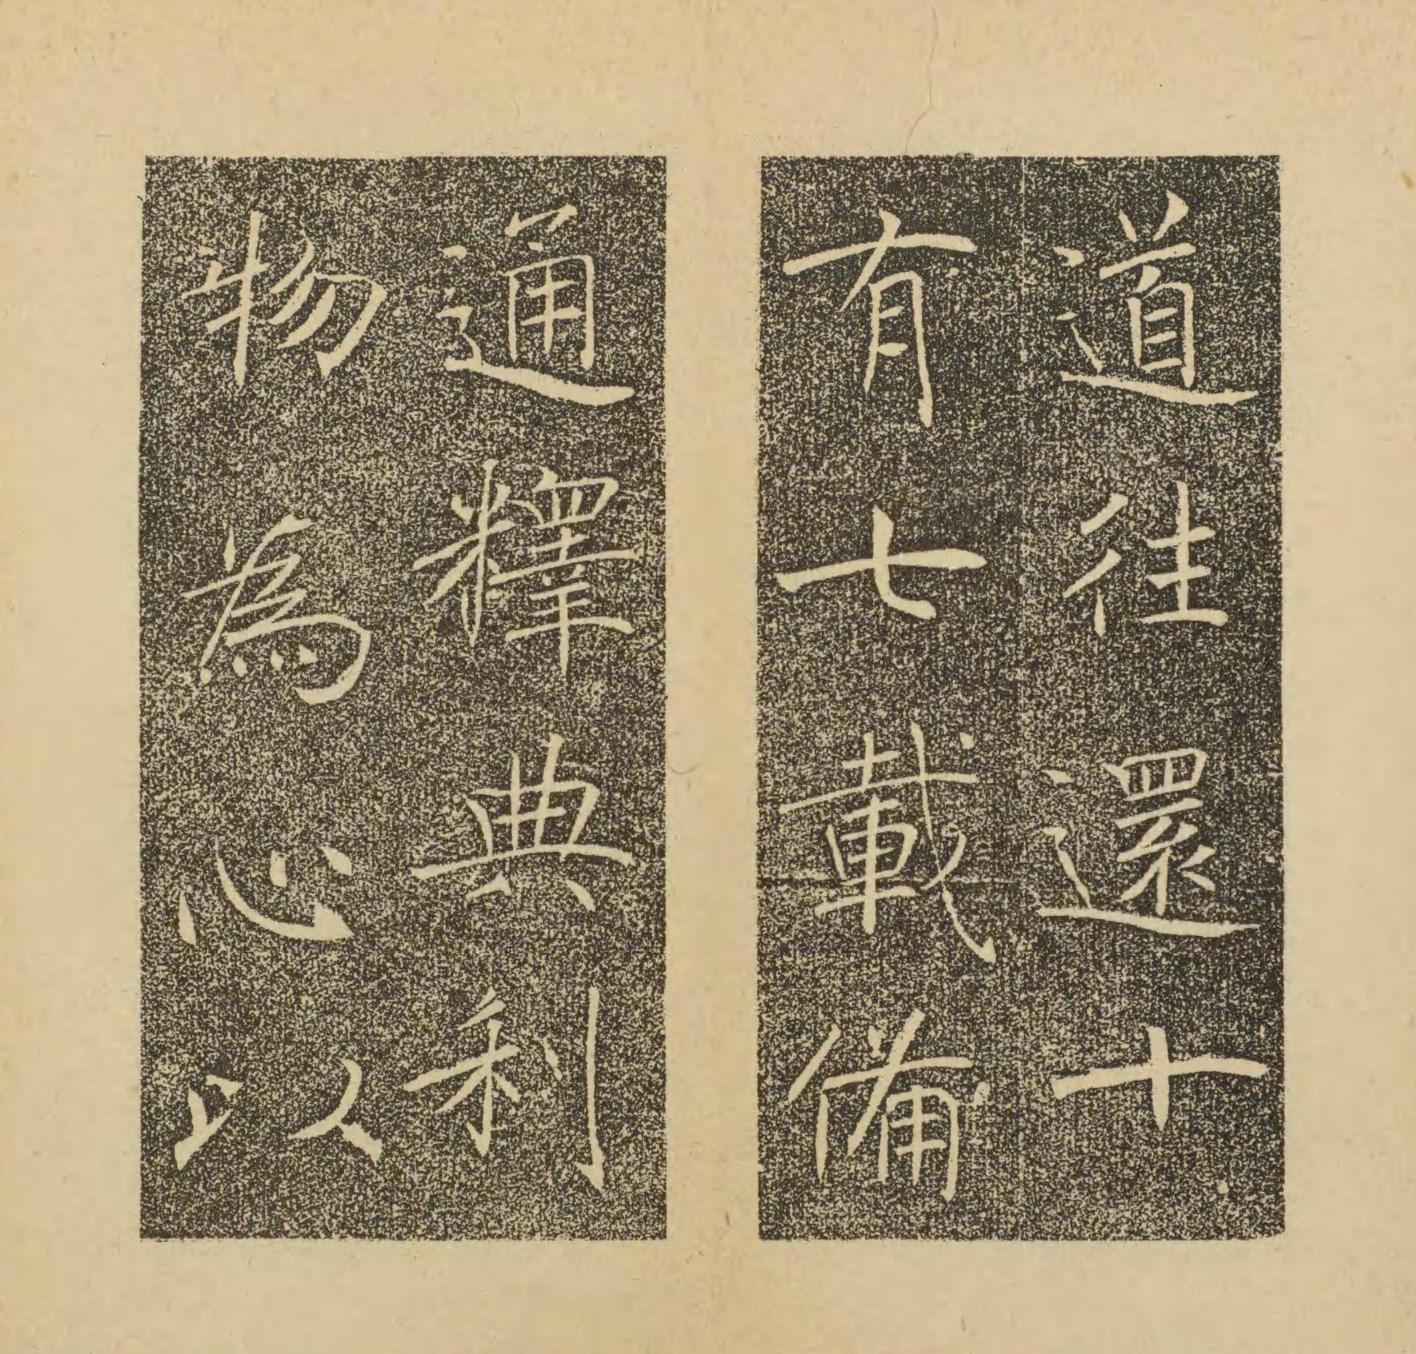 道往還十
有七載備
通釋典利
物為心以